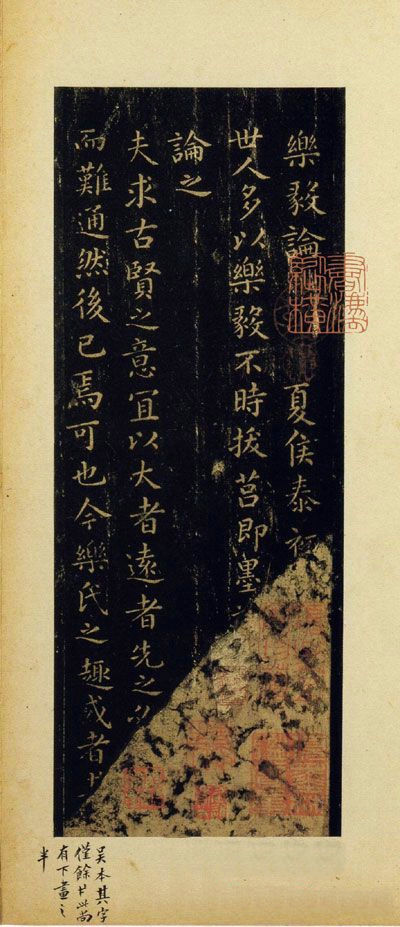 樂毅論 夏侯泰初
世人多以樂毅不時拔莒即墨
論之
夫求古賢之意宜以大者遠者先之必
而難通然後已焉可也今樂氏之趣或者其
吳本其字
僅餘廿此尚
有下畫之
半